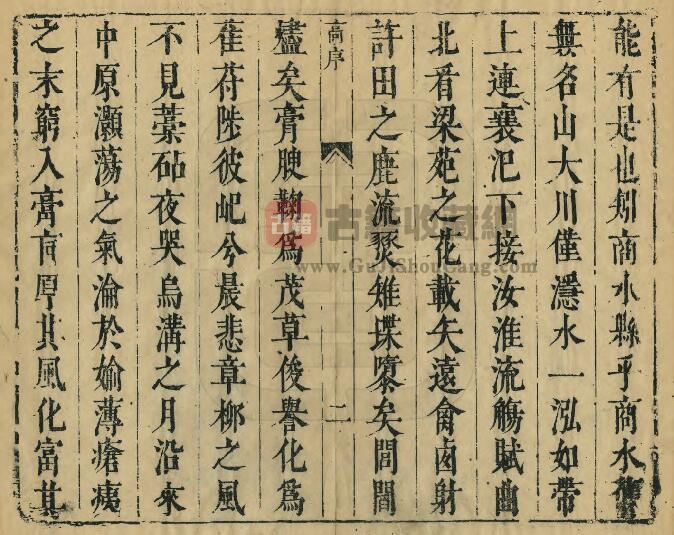 能有是也矧商水縣乎商水
無名山大川僅㶏水一泓如帶
上連襄汜下接汝淮流觴賦曲
北看梁苑之花載矢遠禽鹵射
許田之鹿流雉堞隳矣閭閻
高序
二
燼矣膏腴鞠爲茂草俊譽化爲
萑苻陟彼屺兮晨悲章柳之風
不見藁砧夜哭烏溝之月沿來
中原灝蕩之氣淪於媮薄瘡痍
之末窮入膏肓厚其風化富其
古籍
古籍收藏網
www.GuJiShouCang.com